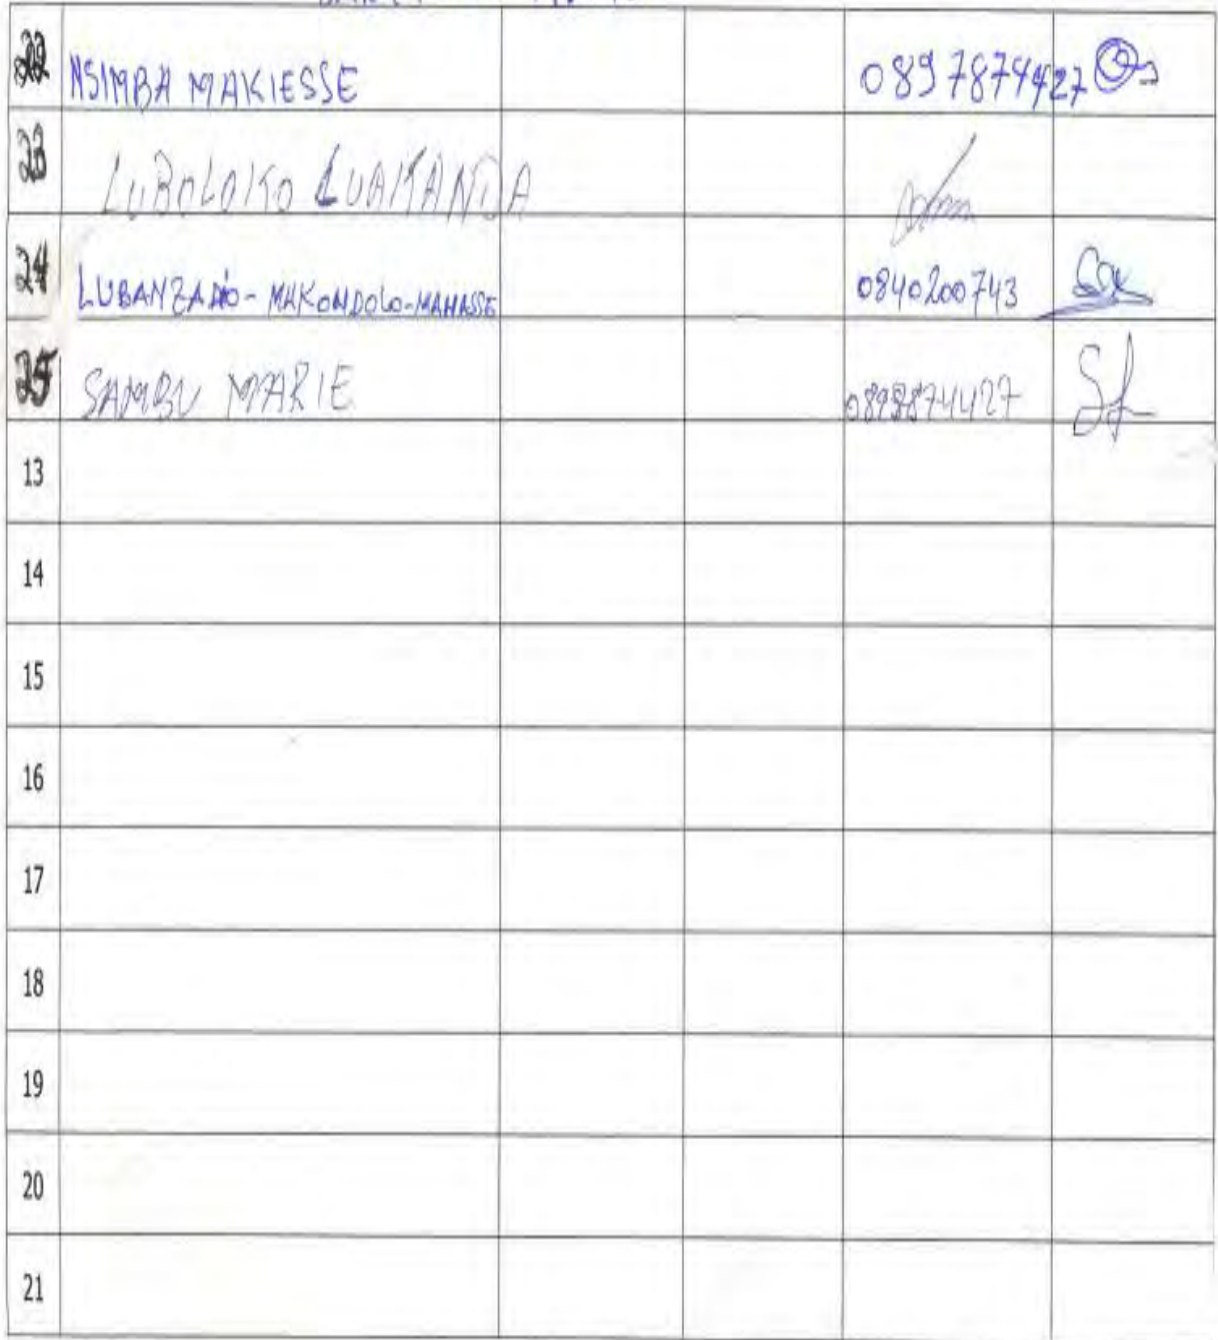 22 NSIMBA MAKIESSE 0897874427
23 LUBOLOKO LUAKANDA
24 LUBANZADIO - MAKONDOLO - MANASSE 0840200743
25 SAMBU MARIE 0898874427
13
14
15
16
17
18
19
20
21